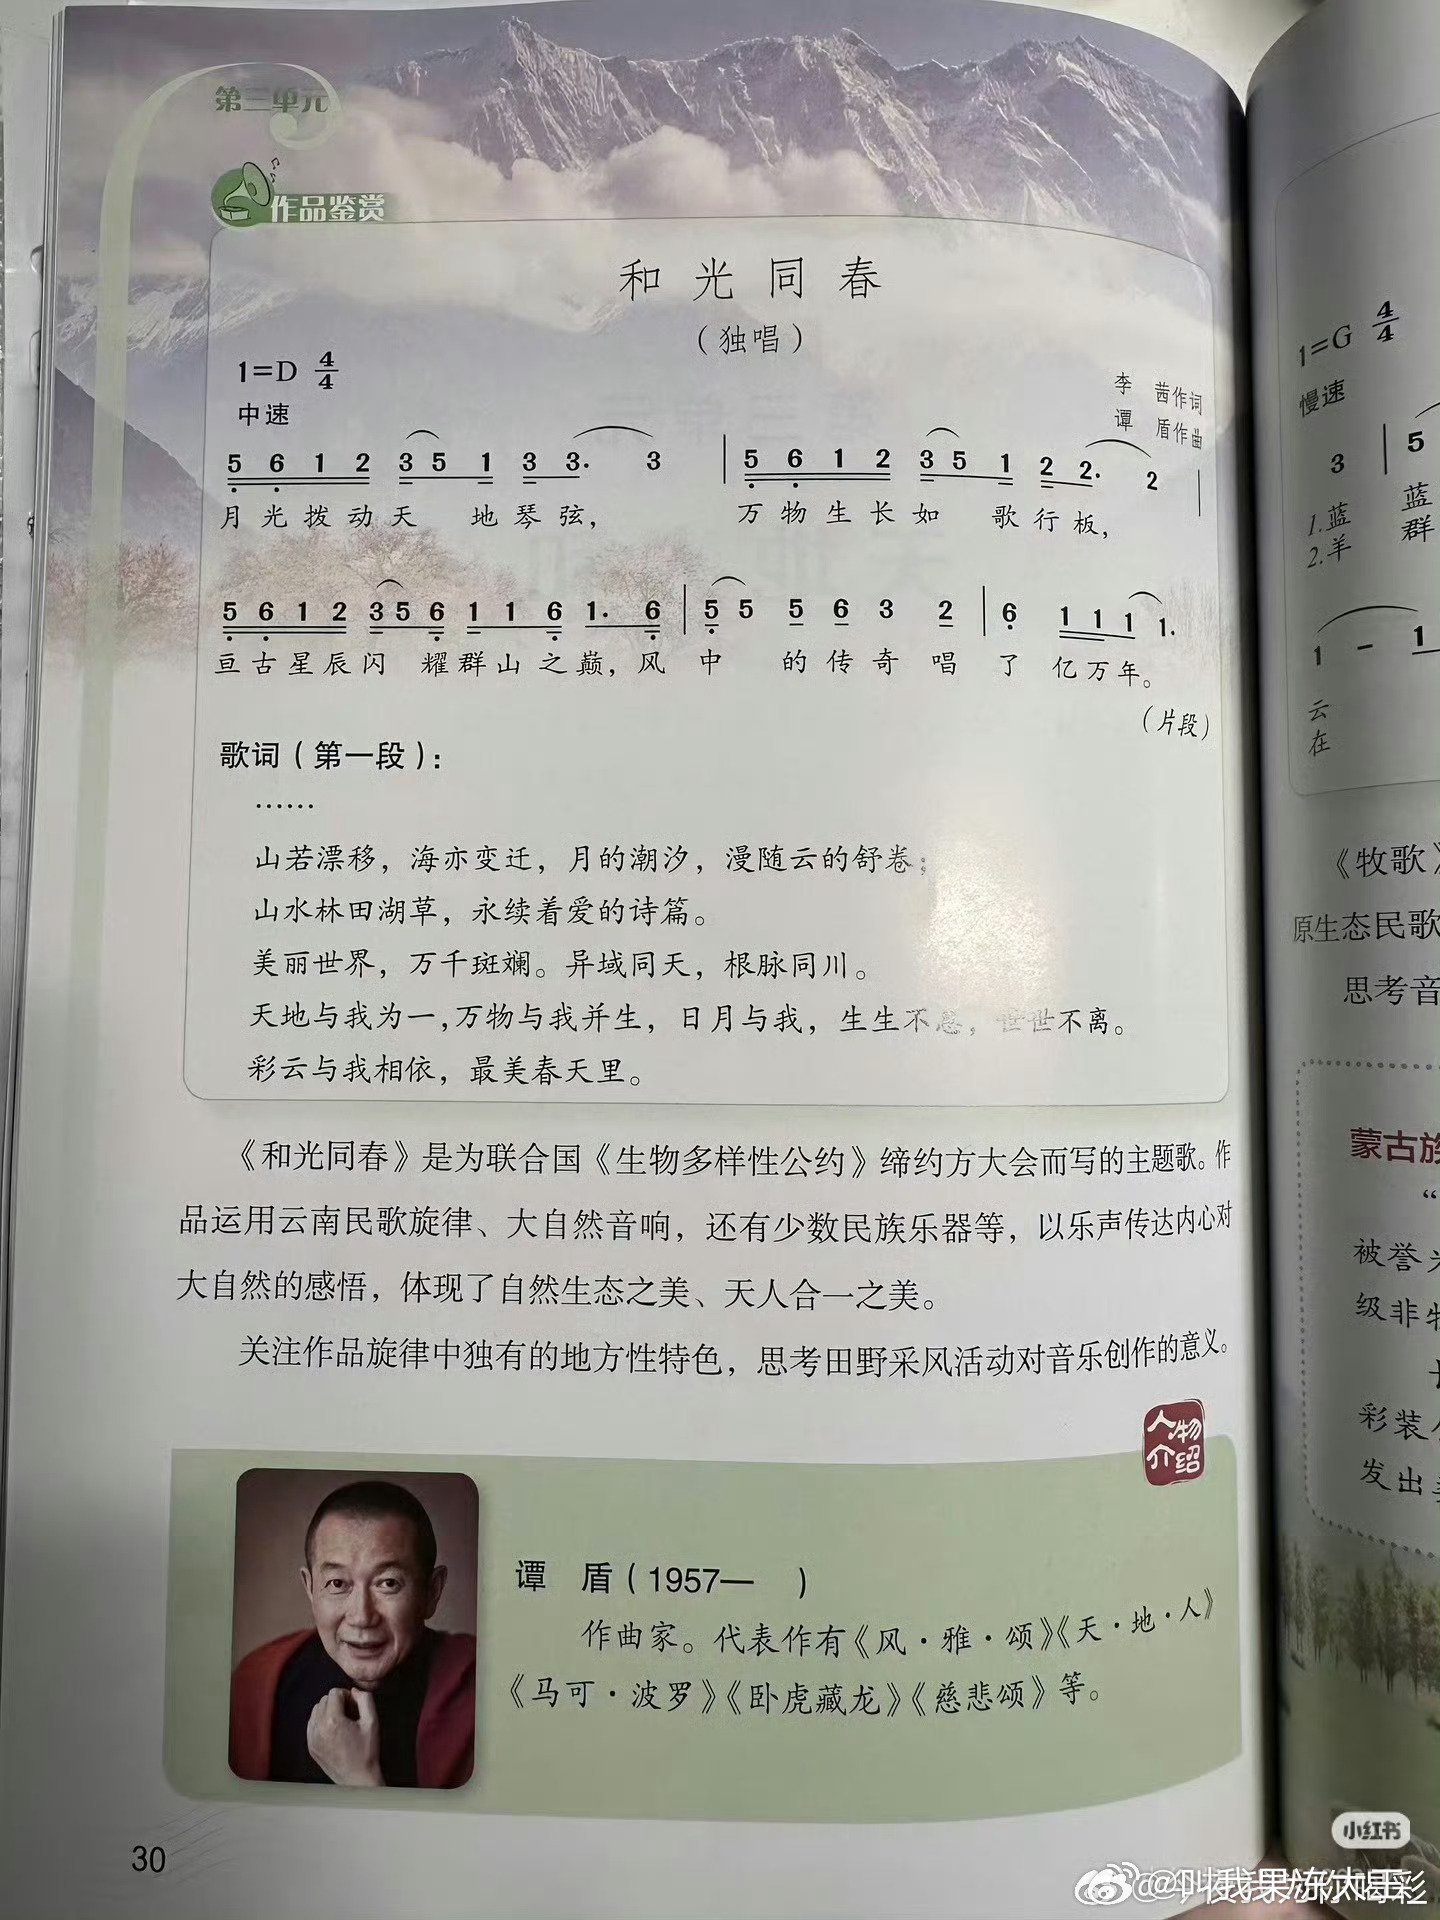 第三单元
作品鉴赏
和光同春
（独唱）
1=D 4/4
中速
李 茜作词
谭 盾作曲
5 6 1 2 3 5 1 3 3. 3 | 5 6 1 2 3 5 1 2 2. 2 |
月光拨动天 地琴弦， 万物生长如 歌行板，
5 6 1 2 3 5 6 1 1 6 1. 6 | 5 5 5 6 3 2 | 6 1 1 1 1.
亘古星辰闪 耀群山之巅，风 中 的传奇 唱 了 亿万年。
（片段）
歌词（第一段）：
……
山若漂移，海亦变迁，月的潮汐，漫随云的舒卷；
山水林田湖草，永续着爱的诗篇。
美丽世界，万千斑斓。异域同天，根脉同川。
天地与我为一，万物与我并生，日月与我，生生不息，世世不离。
彩云与我相依，最美春天里。
《和光同春》是为联合国《生物多样性公约》缔约方大会而写的主题歌。作
品运用云南民歌旋律、大自然音响，还有少数民族乐器等，以乐声传达内心对
大自然的感悟，体现了自然生态之美、天人合一之美。
关注作品旋律中独有的地方性特色，思考田野采风活动对音乐创作的意义。
人物
介绍
谭 盾（1957— ）
作曲家。代表作有《风·雅·颂》《天·地·人》
《马可·波罗》《卧虎藏龙》《慈悲颂》等。
30
1=G 4/4
慢速
3 | 5
1.蓝 蓝
2.羊 群
1 - 1
云
在
《牧歌》
原生态民歌
思考音
蒙古族
“
被誉
级非物
彩装
发出
小红书